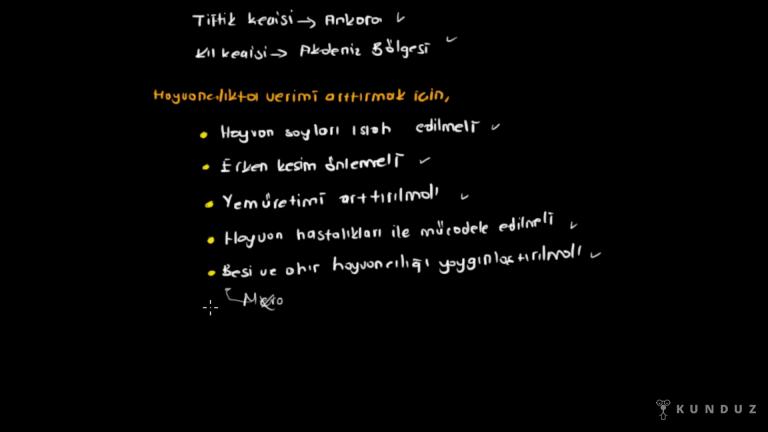 Tiftik keçisi → Ankara
Kıl keçisi → Akdeniz Bölgesi
Hayvancılıkta verimi arttırmak için,
Hayvan soyları ıslah edilmeli
Erken kesim önlemeli
Yem üretimi arttırılmalı
Hayvan hastalıkları ile mücadele edilmeli
Besi ve ahır hayvancılığı yaygınlaştırılmalı
KUNDUZ